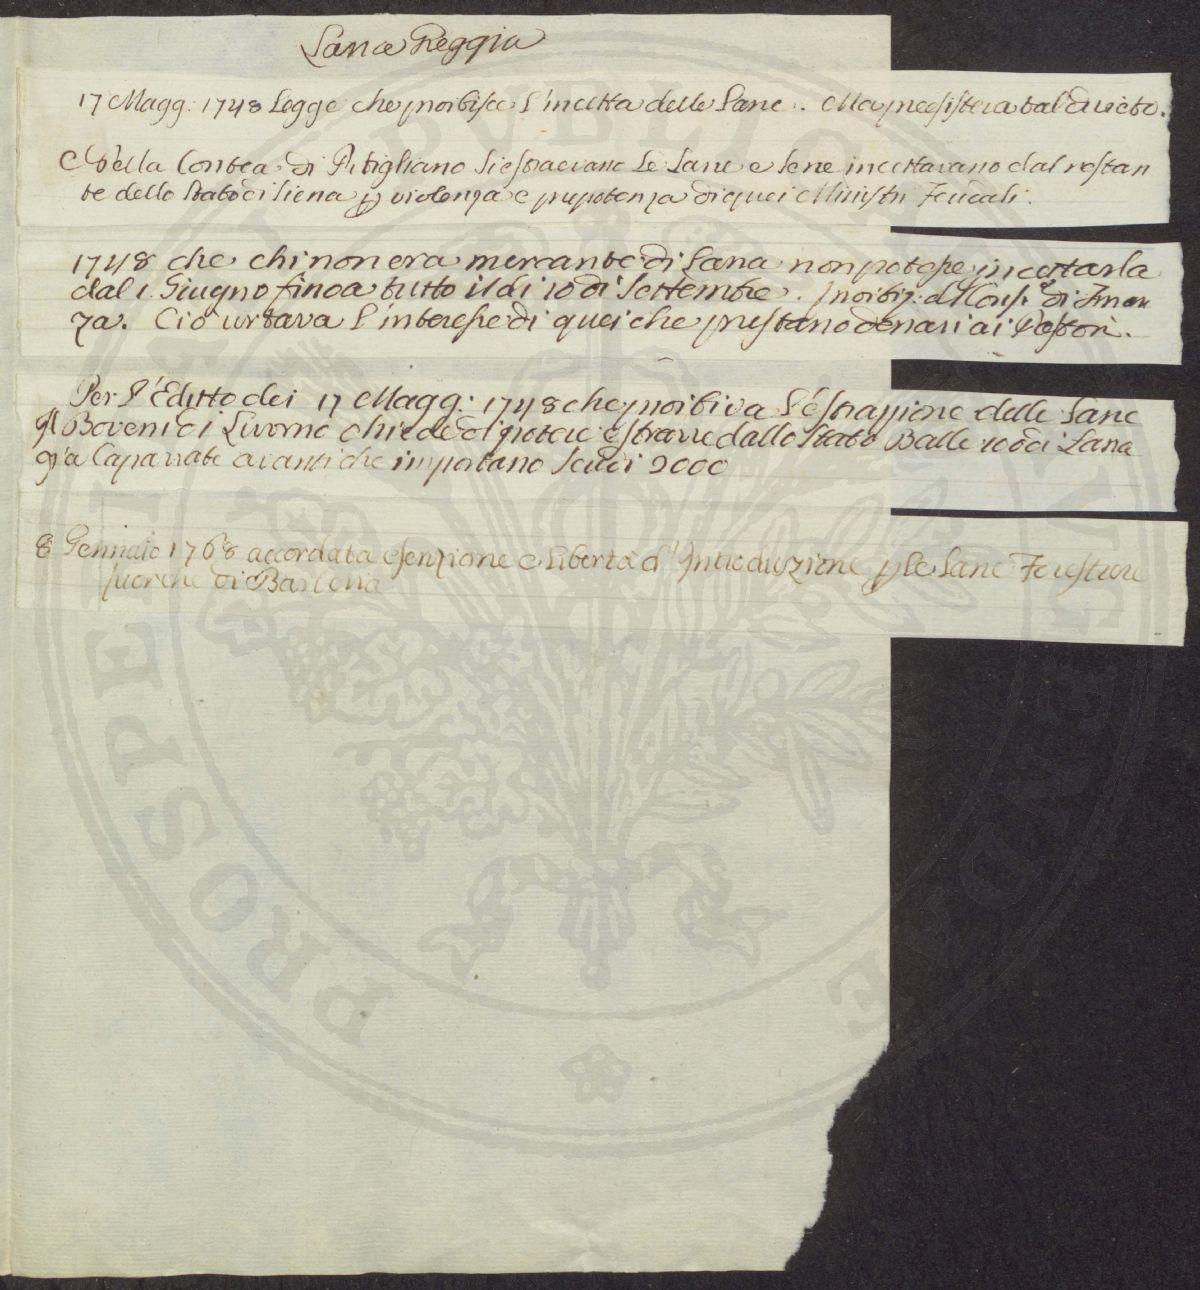 Lana Reggia
17 Magg: 1748 Legge che proibisce l'incetta delle Lane. Ma preesisteva tal divieto.
Della Contea di Pitigliano si estraevano Le Lane e se ne incettavano dal restan
te dello Stato di Siena p violenza e prepotenza di quei Ministri Feudali.
1748 che chi non era mercante di Lana non potesse incettarla
dal 1. Giugno fino a tutto il dì 10 di Settembre. Proibiz: d Consi: di Finan
za. Ciò urtava l'interesse di quei che prestano denari ai Pastori.
Per l'Editto dei 17 Magg: 1748 che proibiva l'estrazzione delle Lane
Boveni di Livorno chiede di potere estrarre dallo Stato Balle 100 di Lana
già Caparrate avanti che importano Scudi 2000
8 Gennaio 1768 accordata esenzione e libertà d'Introduzione p le Lane Forestiere
fuorche di